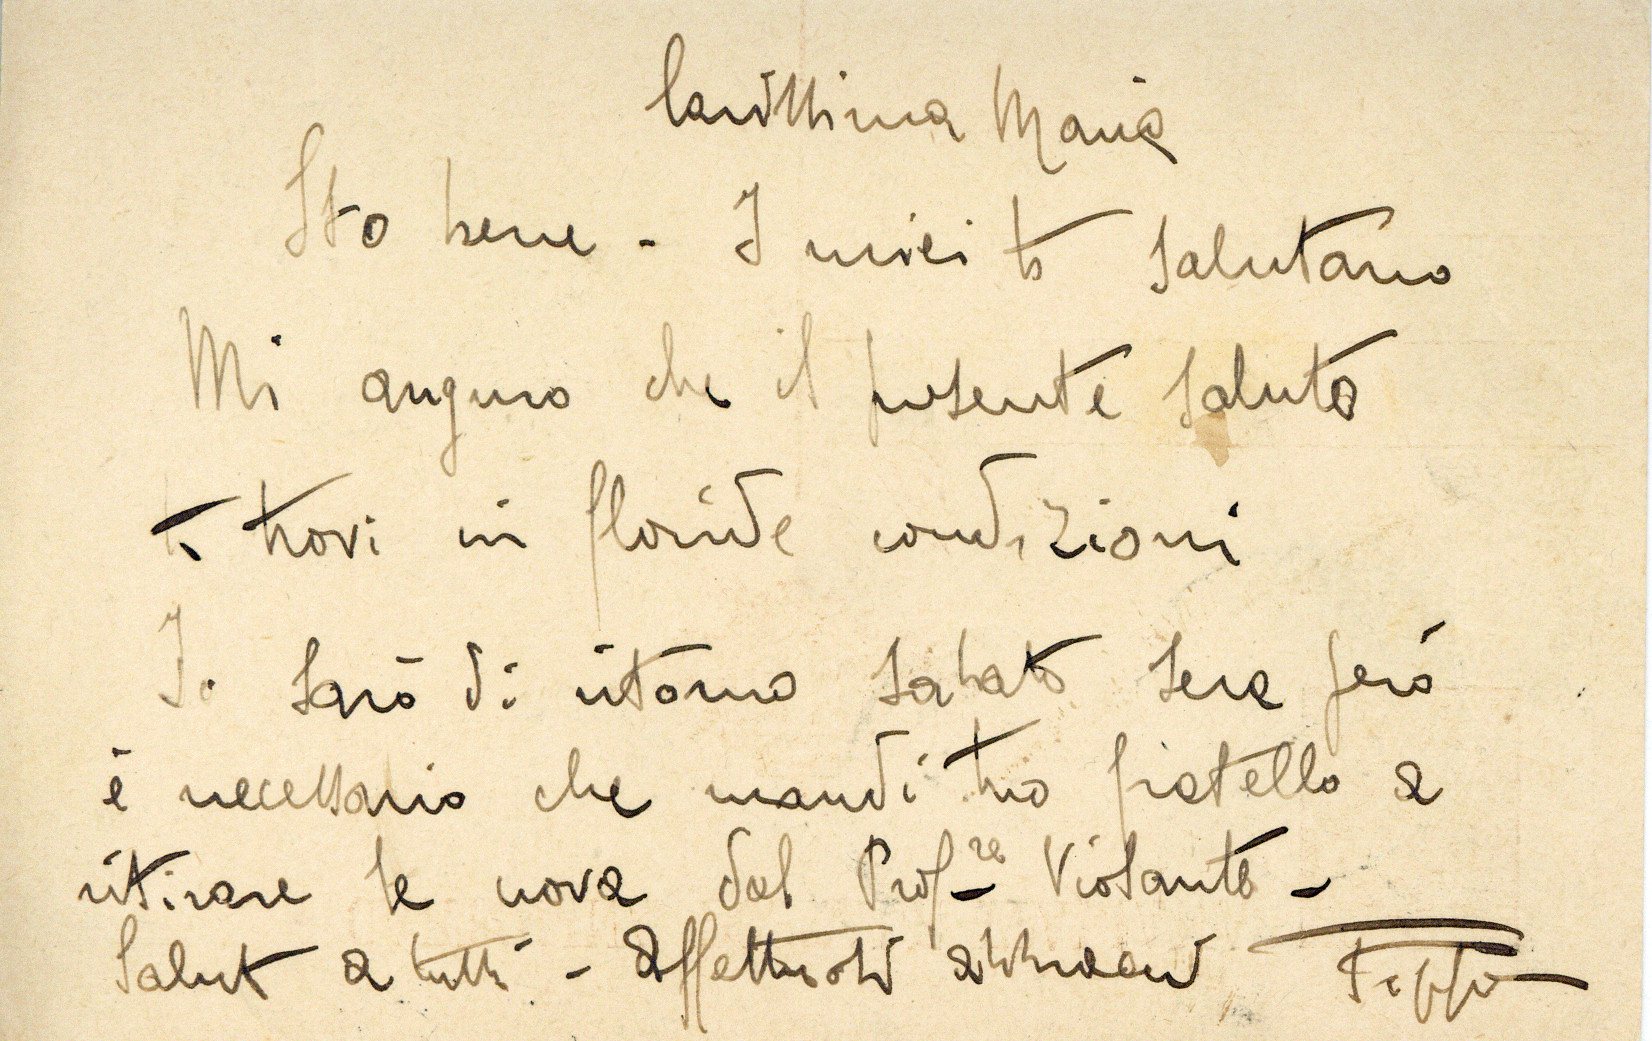 Carissima Maria
Sto bene - I miei ti salutano
Mi auguro che il presente saluto
ti trovi in floride condizioni
Io sarò di ritorno sabato sera però
è necessario che mandi tuo fratello a
ritirare le nova dal Prof.re Violante -
Saluti a tutti - Affettuosi abbracci Peppe